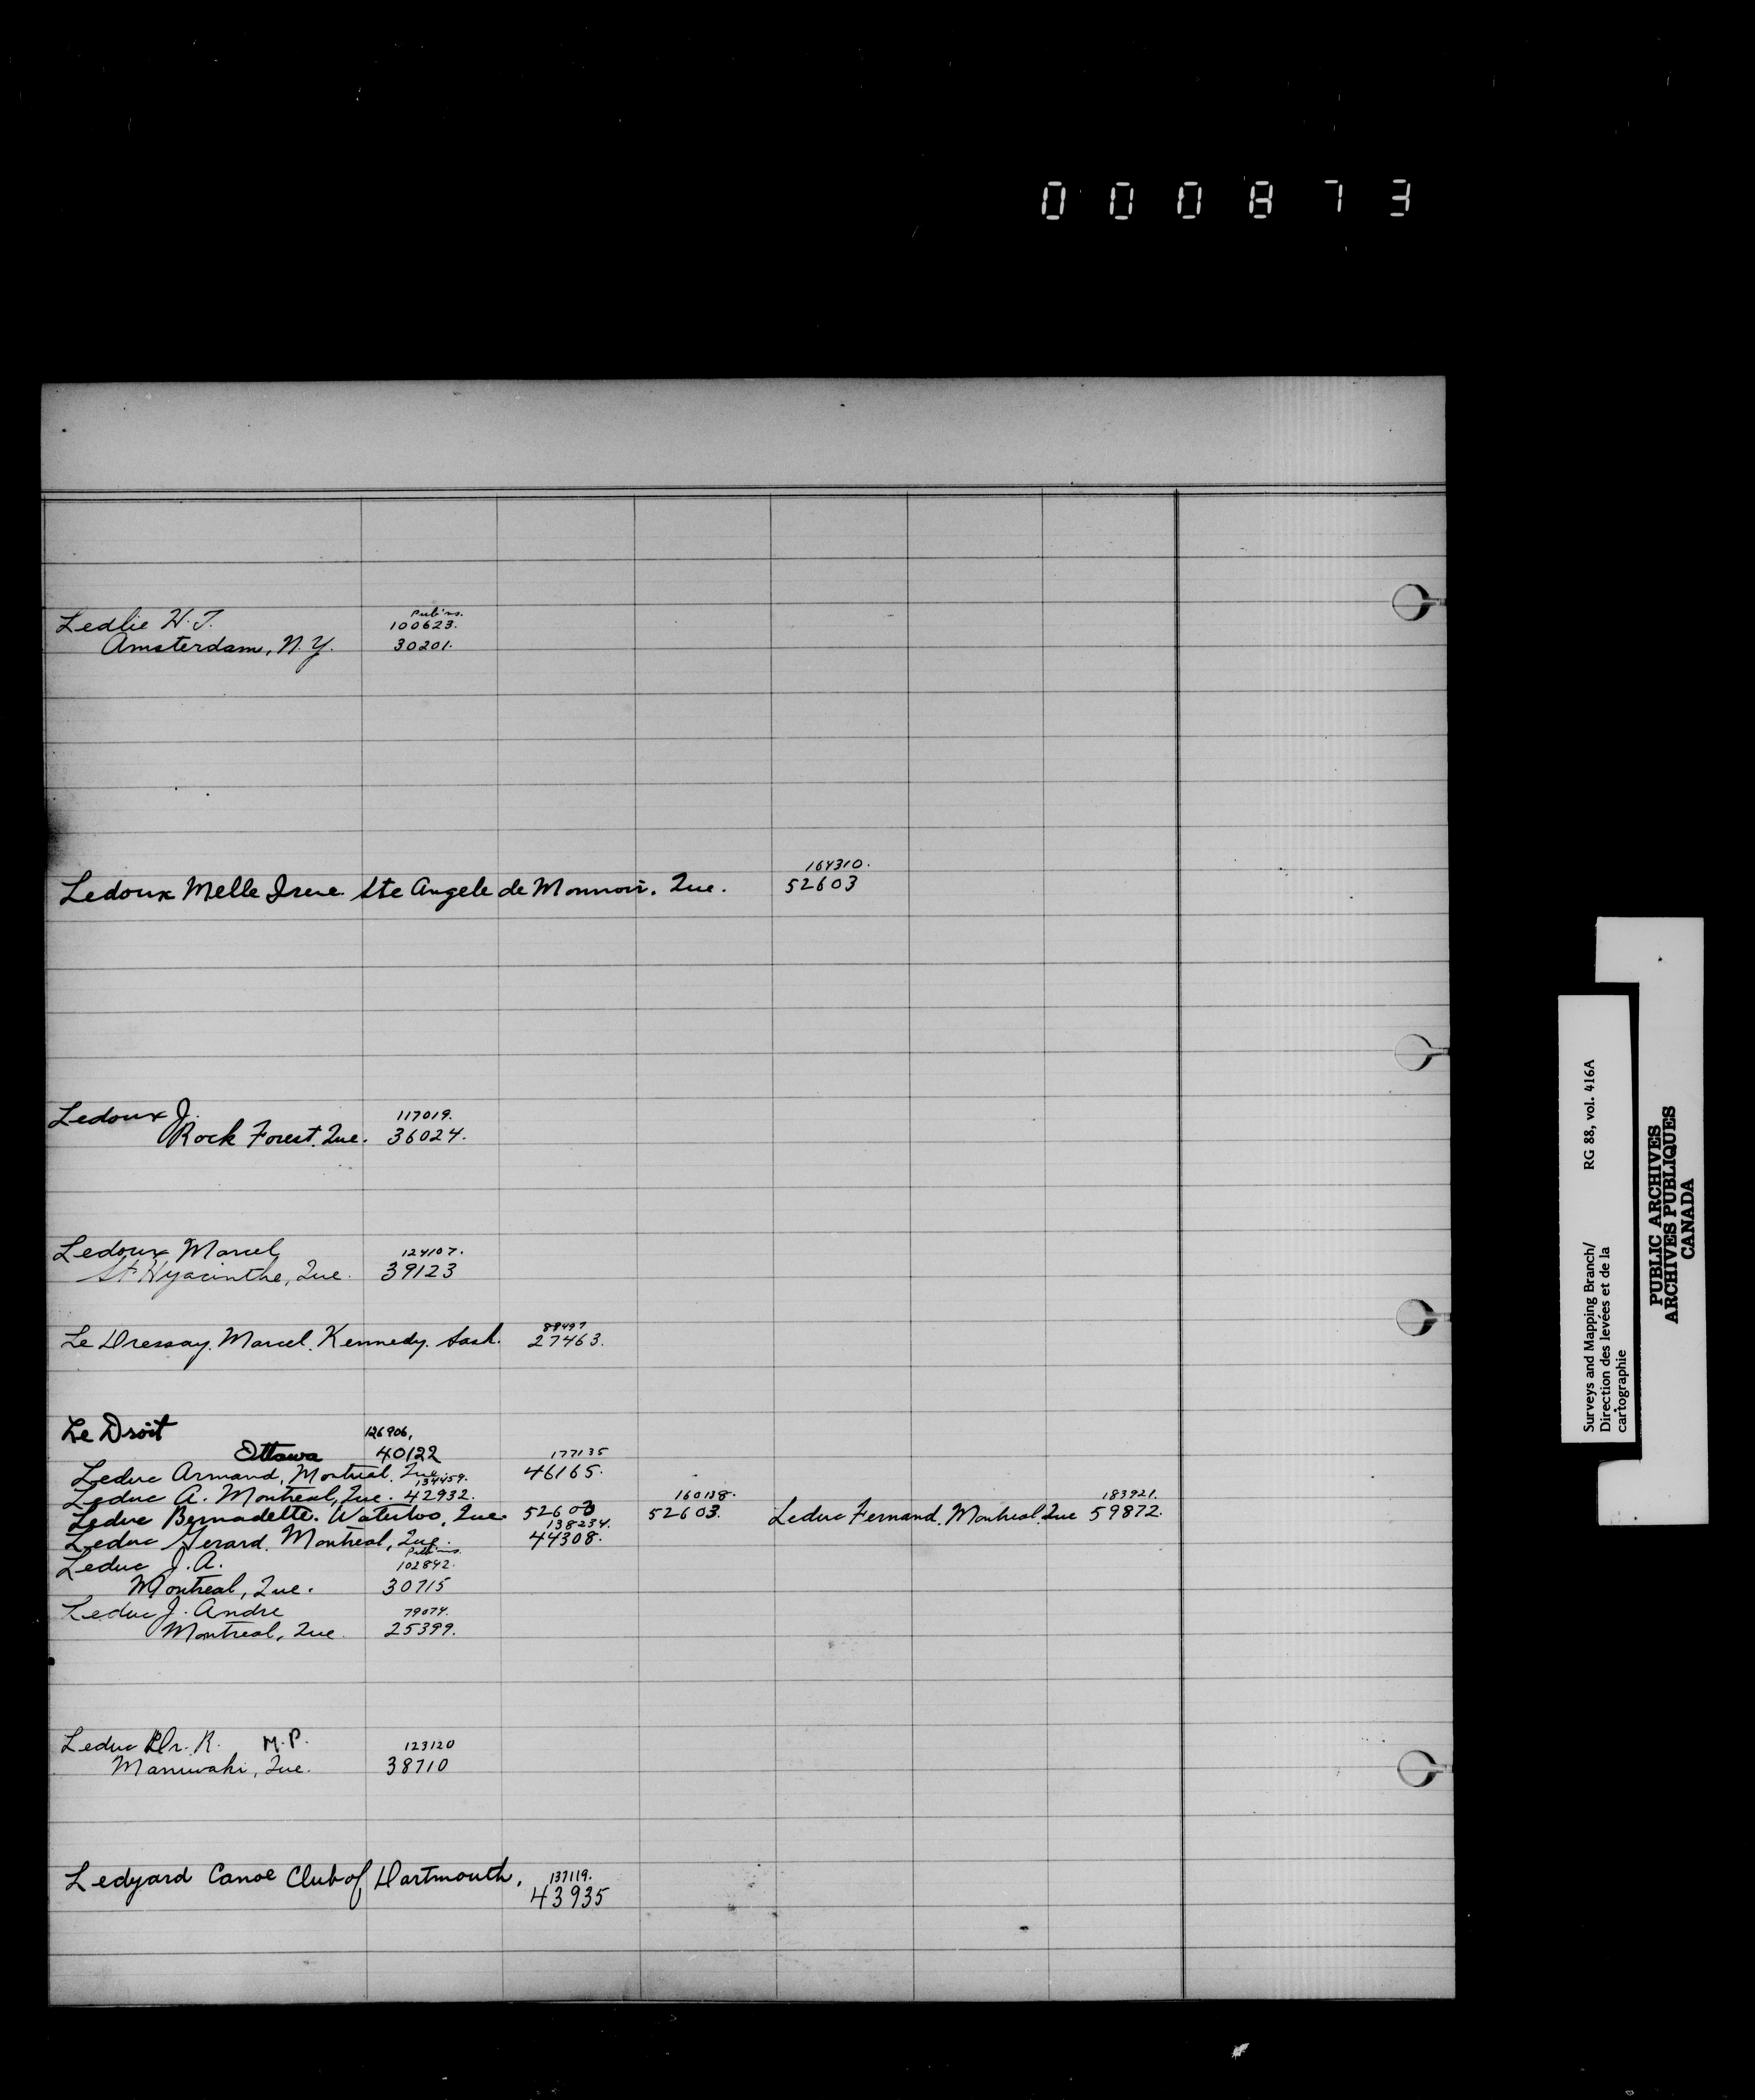 000873
Publ'ns.
Ledlie H.J. 100623.
Amsterdam, N.Y. 30201.
164310.
Ledoux Melle Irene. Ste Angele de Monnoir. Que. 52603
Ledoux J. 117019.
Rock Forest. Que. 36024.
Ledoux Marcel 124107.
St Hyacinthe, Que. 39123
Le Dressay. Marcel. Kennedy. Sask. 27463.
Le Droit 126906,
Ottawa 40122 177135
Leduc Armand, Montreal. Que. 46165.
134459.
Leduc A. Montreal, Que. 42932. 160138. 183921.
Leduc Bernadette. Waterloo, Que. 52603 52603. Leduc Fernand. Montreal. Que 59872.
138234.
Leduc Gerard. Montreal, Que. 44308.
Leduc J.A. 102842.
Montreal, Que. 30715
Leduc J. Andre 79074.
Montreal, Que. 25399.
Leduc Dr. R. M.P. 123120
Maniwaki, Que. 38710
Ledyard Canoe Club of Dartmouth, 137119.
43935
Surveys and Mapping Branch/ RG 88, vol. 416A
Direction des levées et de la
cartographie
PUBLIC ARCHIVES
ARCHIVES PUBLIQUES
CANADA